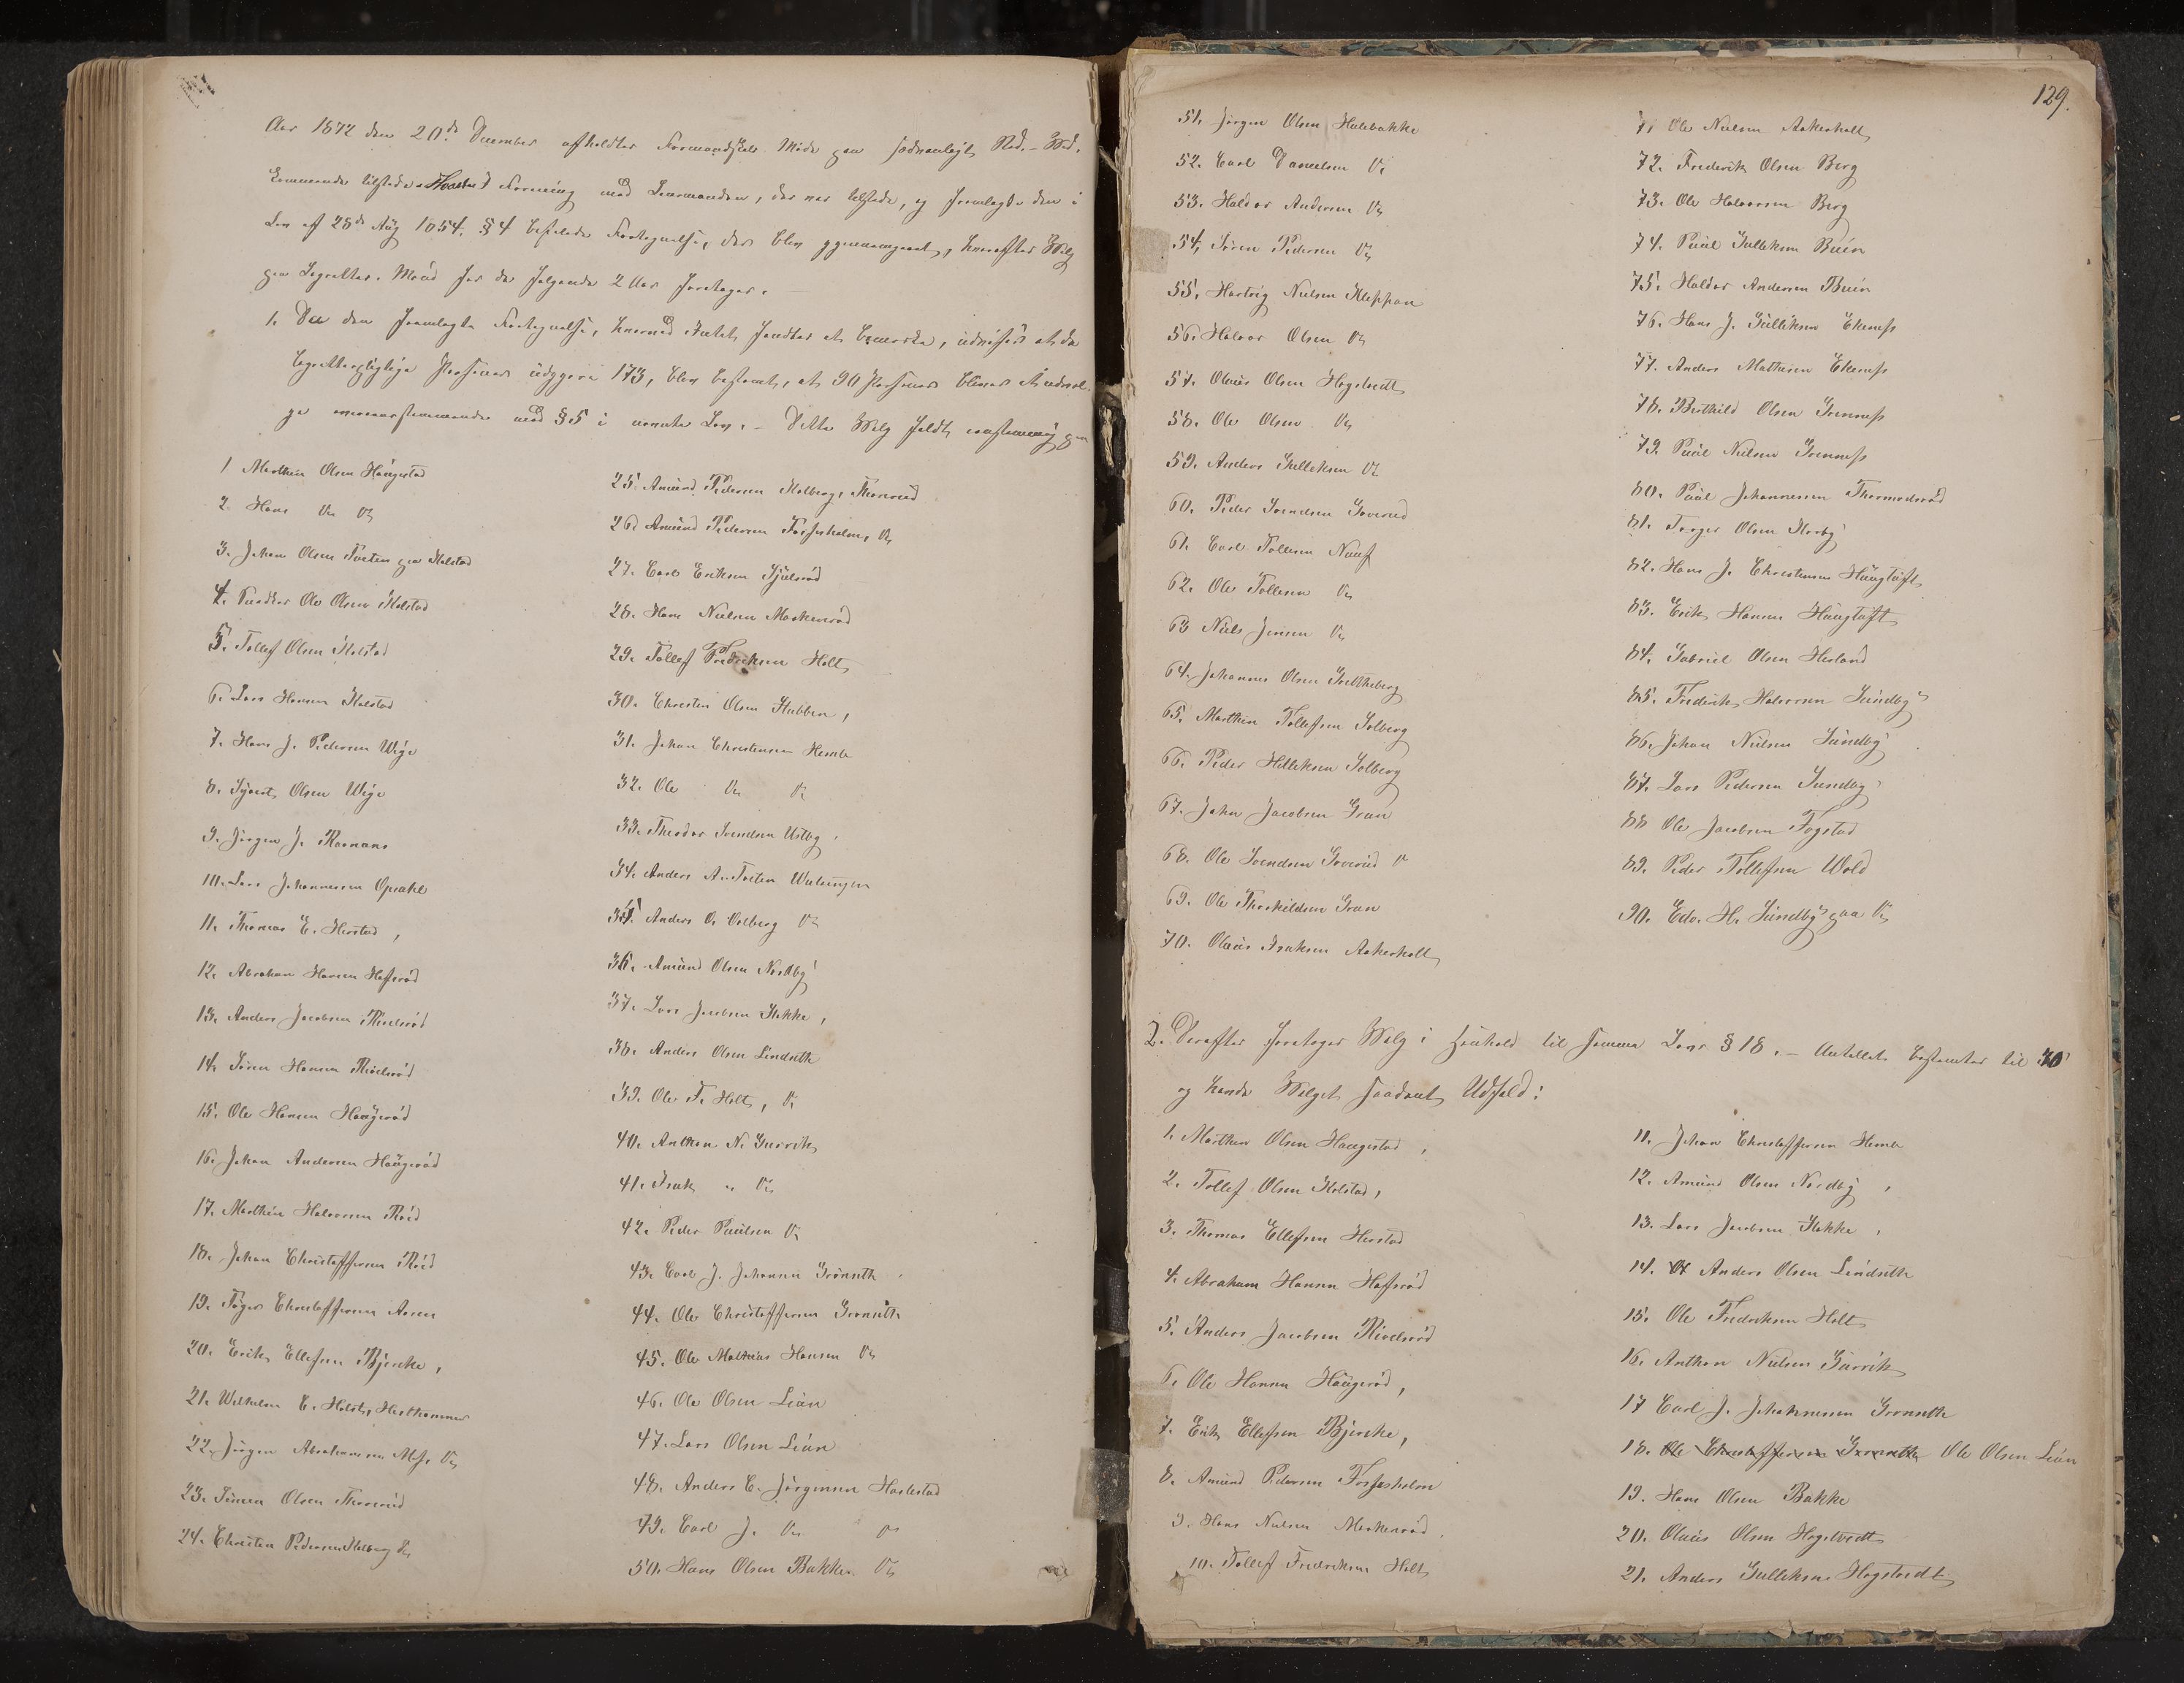 Aar 1872 den 20de December afholdtes Formandskabs Møde paa sædvanligt Sted. – Ved-
kommende tilstede. Hvorved Forening med Lensmanden, der var tilstede, og fremlagde den i
Lov af 28de Aug 1854. § 4 befalede Fortegnelse, der blev gjennemgaaet, hvorefter Valg
paa Lagrettes-Mænd for de følgende 2 Aar foretoges. –
1. Da den fremlagte Fortegnelse, hvorved Intet fandtes at bemærke, udviser at de
lagrettepligtige Personer udgjøre 173, blev bestemt, at 90 Personer bliver at udvæl-
ge overensstemmende med § 5 i nævnte Lov. – Dette Valg faldt eenstemmig paa
1 Marthin Olsen Haugestad
2. Hans Do Do
3. Johan Olsen Toeten paa Kolstad
4. Snedker Ole Olsen Kolstad
5. Tollef Olsen Kolstad
6. Lars Hansen Kolstad
7. Hans J. Pedersen Wige
8. Syvert Olsen Wige
9. Jørgen J. Romans
10. Lars Johannesen Opsahl
11. Thomas E. Herstad,
12. Abraham Hansen Hafsrød
13. Anders Jacobsen Rivelsrød
14. Søren Hansen Rivelsrød
15. Ole Hansen Haugerød
16. Johan Andersen Haugerød
17. Marthin Halvorsen Rød
18. Johan Christoffersen Rød
19. Tøger Christoffersen Aasen
20. Erik Ellefsen Bjercke,
21. Wilhelm C. Holst, Hertkammer
22. Jørgen Abrahamsen Do
23. Simen Olsen Thorerud
24. Christen Pedersen Kolberg Do
25. Amund Pedersen Kolberg, Thorerud
26. Amund Pedersen Fossesholm, Do
27. Carl Eriksen Gjulsrød
28. Hans Nielsen Morkenrød
29. Tollef Fredriksen Holt
30. Christen Olsen Stubben,
31. Johan Christensen Hemb
32. Ole Do Do
33. Theodor Svendsen Ustby
34. Anders A. Toeten Wulsungen
35. Anders O. Volberg Do
36. Amund Olsen Nordby
37. Lars Jacobsen Kokke,
38. Anders Olsen Lindseth
39. Ole F. Holt, Do
40. Anthon N. Gurrik
41. Isak " Do
42. Peder Paulsen Do
43. Carl J. Johansen Grønneth
44. Ole Christoffersen Grønneth
45. Ole Mathias Hansen Do
46. Ole Olsen Lian
47. Lars Olsen Lian
48. Anders C. Jørgensen Haslestad
49. Carl J. Do Do
50. Hans Olsen Bakke. Do
129.
51. Jørgen Olsen Holebakke
52. Carl Danielsen Do
53. Haldor Andersen Do
54, Søren Pedersen Do
55. Hartvig Nielsen Kleppan
56. Halvor Olsen Do
57. Olaus Olsen Hogstvedt
58. Ole Olsen Do
59. Anders Gulleksen Do
60. Peder Svendsen Goverud
61. Carl Tollesen Næss
62. Ole Tollesen Do
63 Niels Jensen Do
64. Johannes Olsen
65. Marthin Tollefsen Solberg
66. Peder Helleksen Solberg
67. John Jacobsen Gran
68. Ole Svendsen Goverud
69. Ole Thorkildsen Gran
70. Olaus Isaksen Aakerholt
71 Ole Nielsen Aakerholt
72. Frederik Olsen Berg
73. Ole Halvorsen Berg
74. Paul Gulleksen Buen
75. Haldor Andersen Buen
76. Hans J. Gulliksen Ekenæss
77. Anders Mathisen Ekenæss
78. Bothild Olsen Grennæss
79. Paul Nielsen Grennæss
80. Paul Johannesen Thormodsrød
81. Torger Olsen Skorby
82. Hans J. Christensen Haugtuft
83. Erik Hansen Haugtuft
84. Gabriel Olsen Hesland
85. Frederik Halvorsen Sundby
86. Johan Nielsen Sundby
87. Lars Pedersen Sundby
88 Ole Jacobsen Fogstad
89. Peder Tollefsen Wold
90. Edv. H. Sundby paa Do
2. Derefter foretoges Valg i Henhold til samme Lovs § 18. – Antallet bestemtes til 30
og havde Valget saadant Udfald:
1. Marthin Olsen Haugestad,
2. Tollef Olsen Kolstad,
3. Thomas Ellefsen Herstad
4. Abraham Hansen Hafsrød
5. Anders Jacobsen Rivelsrød
6. Ole Hansen Haugerød,
7. Erik Ellefsen Bjercke,
8. Amund Pedersen Fossesholm
9. Hans Nielsen Morkenrød
10. Tollef Fredriksen Holt
11. Johan Christoffersen Hemb
12. Amund Olsen Nordby,
13. Lars Jacobsen Kokke,
14. Anders Olsen Lindseth
15. Ole Fredriksen Holt
16. Anthon Nielsen Gurrik
17 Carl J. Johannesen Grønneth
18. Ole Christoffersen Grønneth Ole Olsen Lian
19. Hans Olsen Bakke
20. Olaus Olsen Hogstvedt
21. Anders Gulleksen Hogstvedt